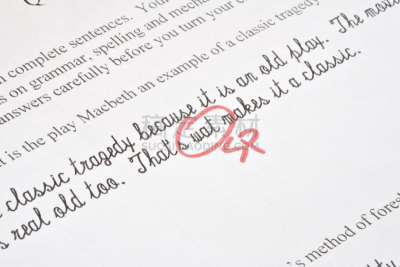 n complete sentences. Your
s on grammar, spelling and mecha
answers carefully before you turn your e
t is the play Macbeth an example of a classic tragedy
classic tragedy because it is an old play. The movi
s real old too. That's wat makes it a classic.
's method of fores